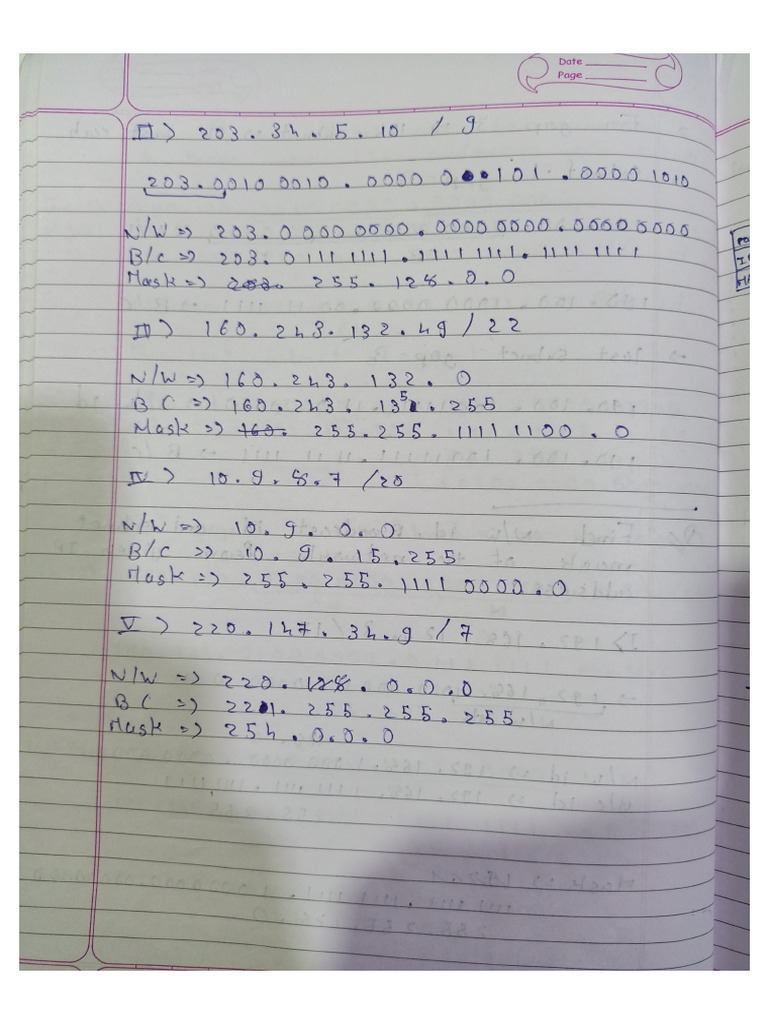 Date
Page
II> 203.34.5.10 / 9
203.0010 0010.0000 0101.0000 1010
N/W => 203.0 0000000.0000 0000.0000 0000
B/C => 203.0 1111111.1111 1111.1111 1111
Mask => 203. 255.128.0.0
III> 160.243.132.49 / 22
N/W => 160.243.132.0
BC => 160.243.135.255
Mask => 160. 255.255.1111 1100.0
IV> 10.9.8.7 /20
N/W => 10.9.0.0
B/C => 10.9.15.255
Mask => 255.255.1111 0000.0
V> 220.147.34.9 / 7
N/W => 220.128.0.0.0
BC => 221.255.255.255
Mask => 254.0.0.0